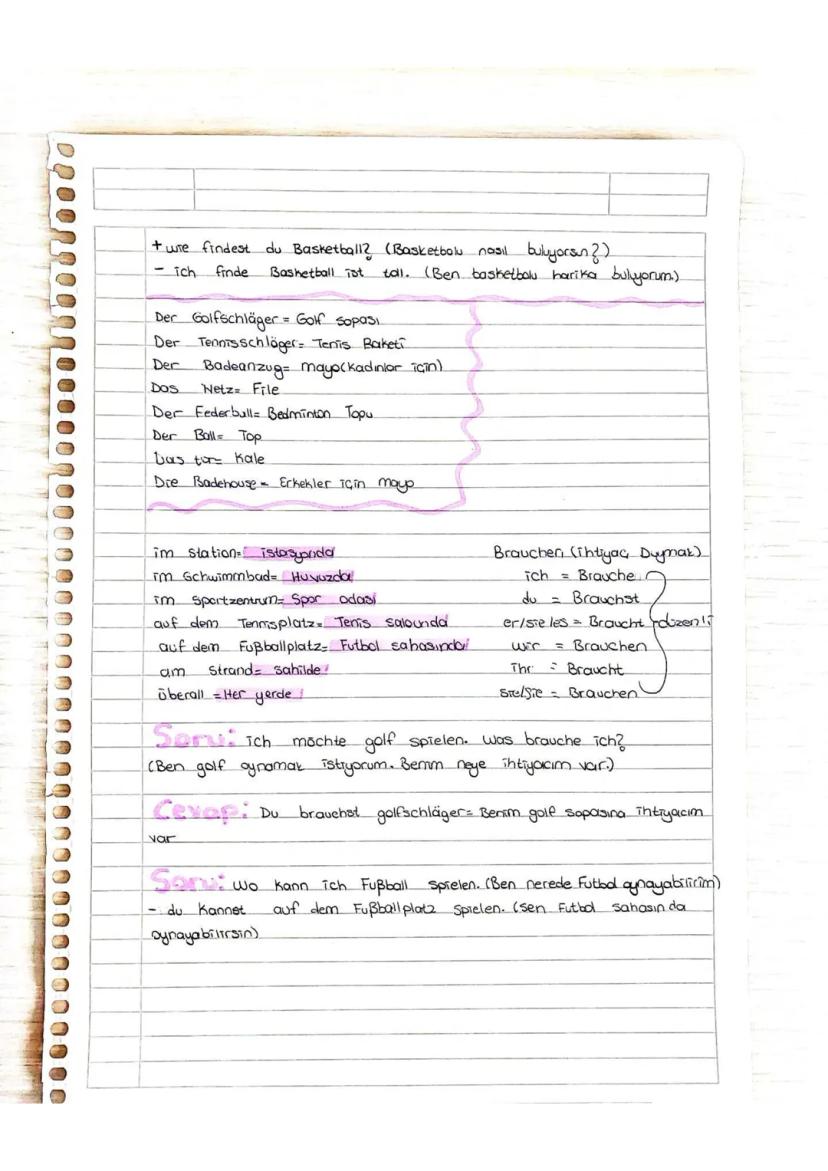 + wie findest du Basketball? (Basketbolu nasıl buluyorsun?)
- ich finde Basketball ist toll. (Ben basketbolu harika buluyorum.)
Der Golfschläger = Golf sopası
Der Tennisschläger= Tenis Raketi
Der Badeanzug= mayo(kadınlar için)
Das Netz= File
Der Federbull= Bedminton Topu
Der Ball= Top
Das tor= Kale
Die Badehouse= Erkekler için mayo
im Station= istasyonda
im Schwimmbad= Huvuzda
im Sportzentrum= Spor odası
auf dem Tennisplatz= Tenis salounda
auf dem Fußballplatz= Futbol sahasında
am Strand= sahilde
überall = Her yerde
Brauchen (ihtiyaç Duymak)
ich = Brauche
du = Brauchst
er/sie/es = Braucht düzenli
wir = Brauchen
ihr = Braucht
sie/Sie = Brauchen
Soru: ich möchte golf spielen. was brauche ich?
(Ben golf oynamak istiyorum. Benim neye ihtiyacım var.)
Cevap: Du brauchst golfschläger= Benim golf sopasına ihtiyacım
var
Soru: wo kann ich Fußball spielen. (Ben nerede Futbol oynayabilirim)
- du kannst auf dem Fußballplatz spielen. (sen Futbol sahasında
oynayabilirsin)